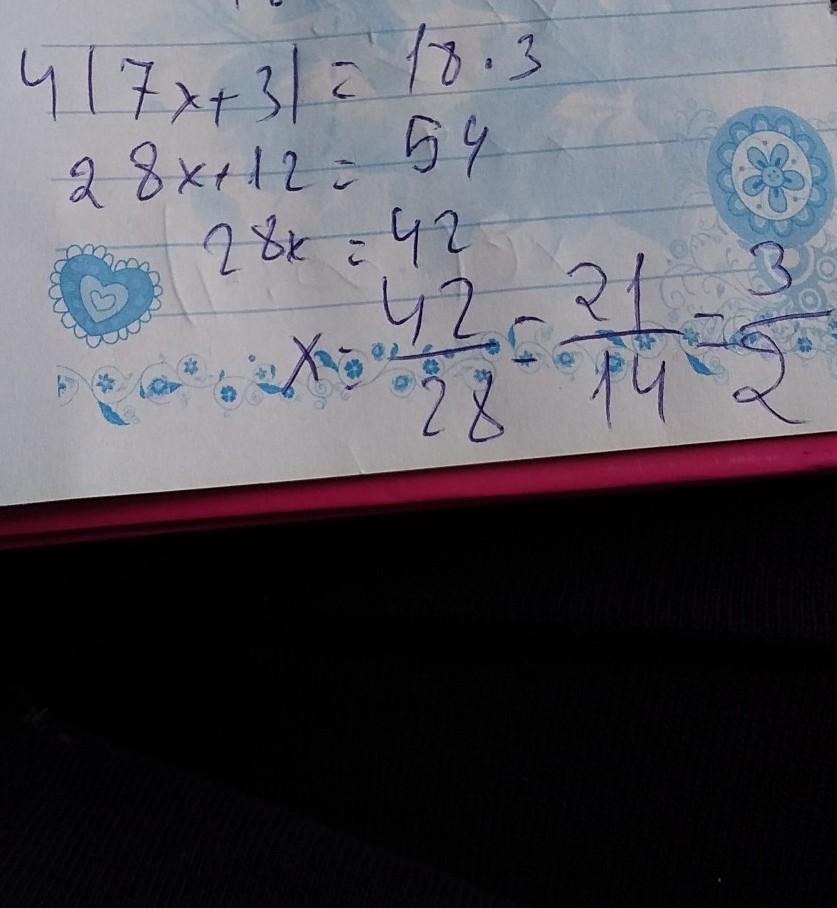 4|7x+3| = 18.3
28x+12 = 54
28x = 42
x = 42/28 = 21/14 = 3/2